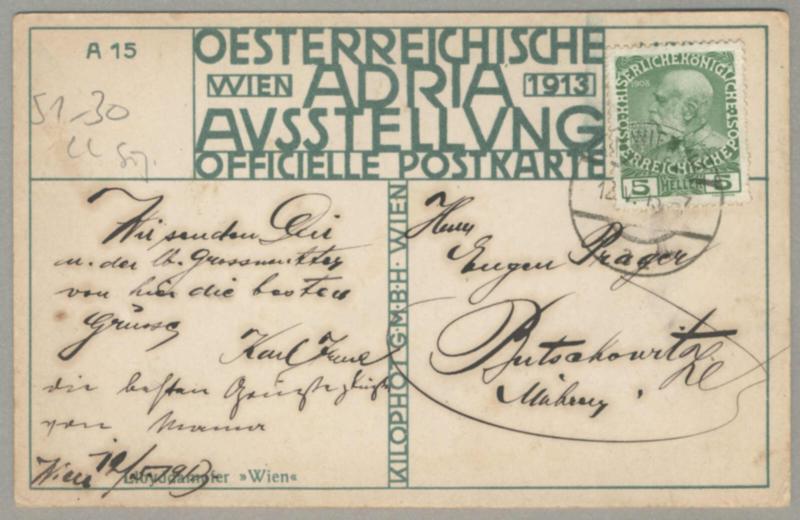 A 15
OESTERREICHISCHE
WIEN ADRIA 1913
AVSSTELLVNG
OFFICIELLE POSTKARTE
KAISERLICHEKÖNIGLICHE
OESTERREICHISCHE POST
1908
5 HELLER 5
WIEN
51-30
Wir senden Dir
u. der lb. Grossmutter
von hier die besten
Grüsse
Karl
die besten Grüße
von Mama
Wien 12/ 1913
Lloyddampfer »Wien«
KILOPHOT G·M·B·H· WIEN
Herrn
Eugen Prager
Butschowitz
Mähren